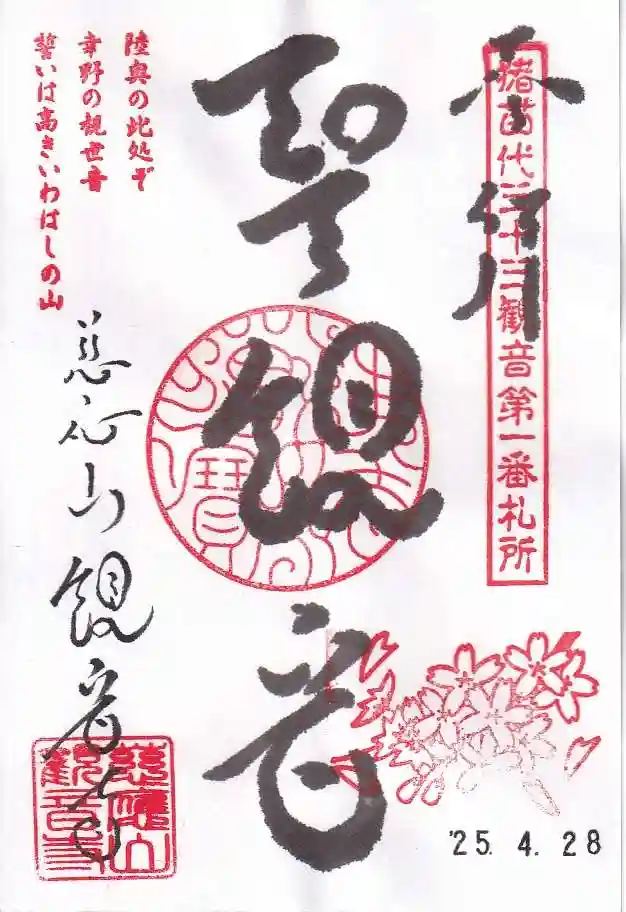 奉拝
猪苗代三十三観音第一番札所
聖観音
陸奥の此処ぞ
幸野の観世音
誓いは高きいわはしの山
慈応山観音寺
慈應山
観音寺
'25. 4. 28